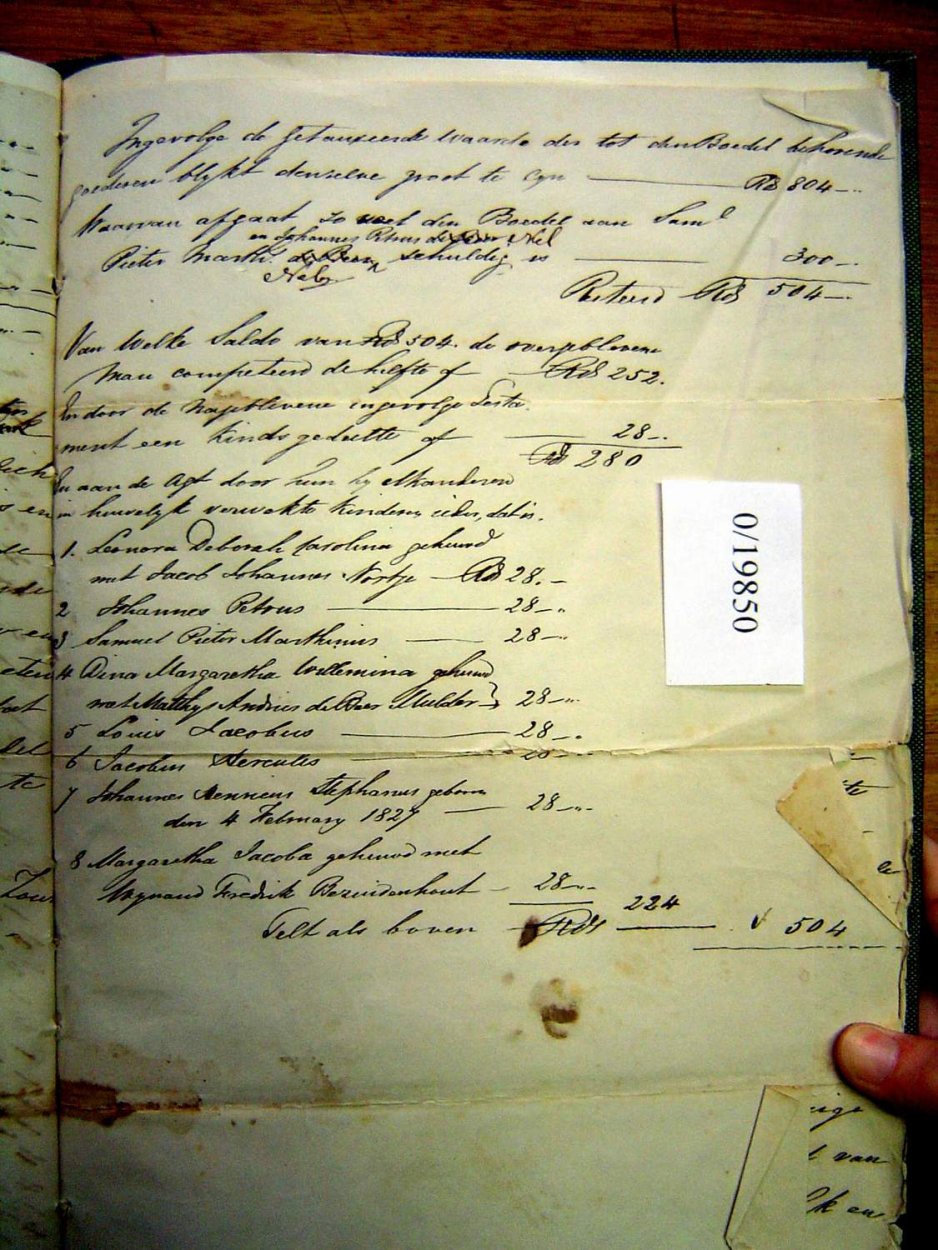 Ingevolge de Getauxeerde Waarde der tot den Boedel behorende
goederen blykt denzelve groot te zyn Rds 804
Waarvan afgaat zo veel den Boedel aan Saml
en Johannes Petrus de Nel
Pieter Marths. schuldig is 300
Nel
Resteerd Rds 504
Van Welke Saldo van Rds 504. de overgeblevene
Man competeerd de helfte of Rds 252.
En door de Nageblevene ingevolge Testa
ment een Kinds gedeelte of 28
Rds 280
En aan de Agt door hun by elkanderen
in huwelyk verwekte Kinderen, ieder, dat is.
1. Leonora Deborah Carolina gehuwd
met Jacob Johannes Nortje Rds 28.
2 Johannes Petrus 28
3 Samuel Pieter Marthinus 28
4 Dina Margaretha Willemina gehuwd
met Matthys Andries de Beer Mulder 28
5 Louis Jacobus 28
6 Jacobus Hercules 28
7 Johannes Stephanus geboren
den 4 February 1827 28
8 Margaretha Jacoba gehuwd met
Wynand Fredrik Bezuidenhout 28
224
Telt als boven Rds 504
0/19850
van
en